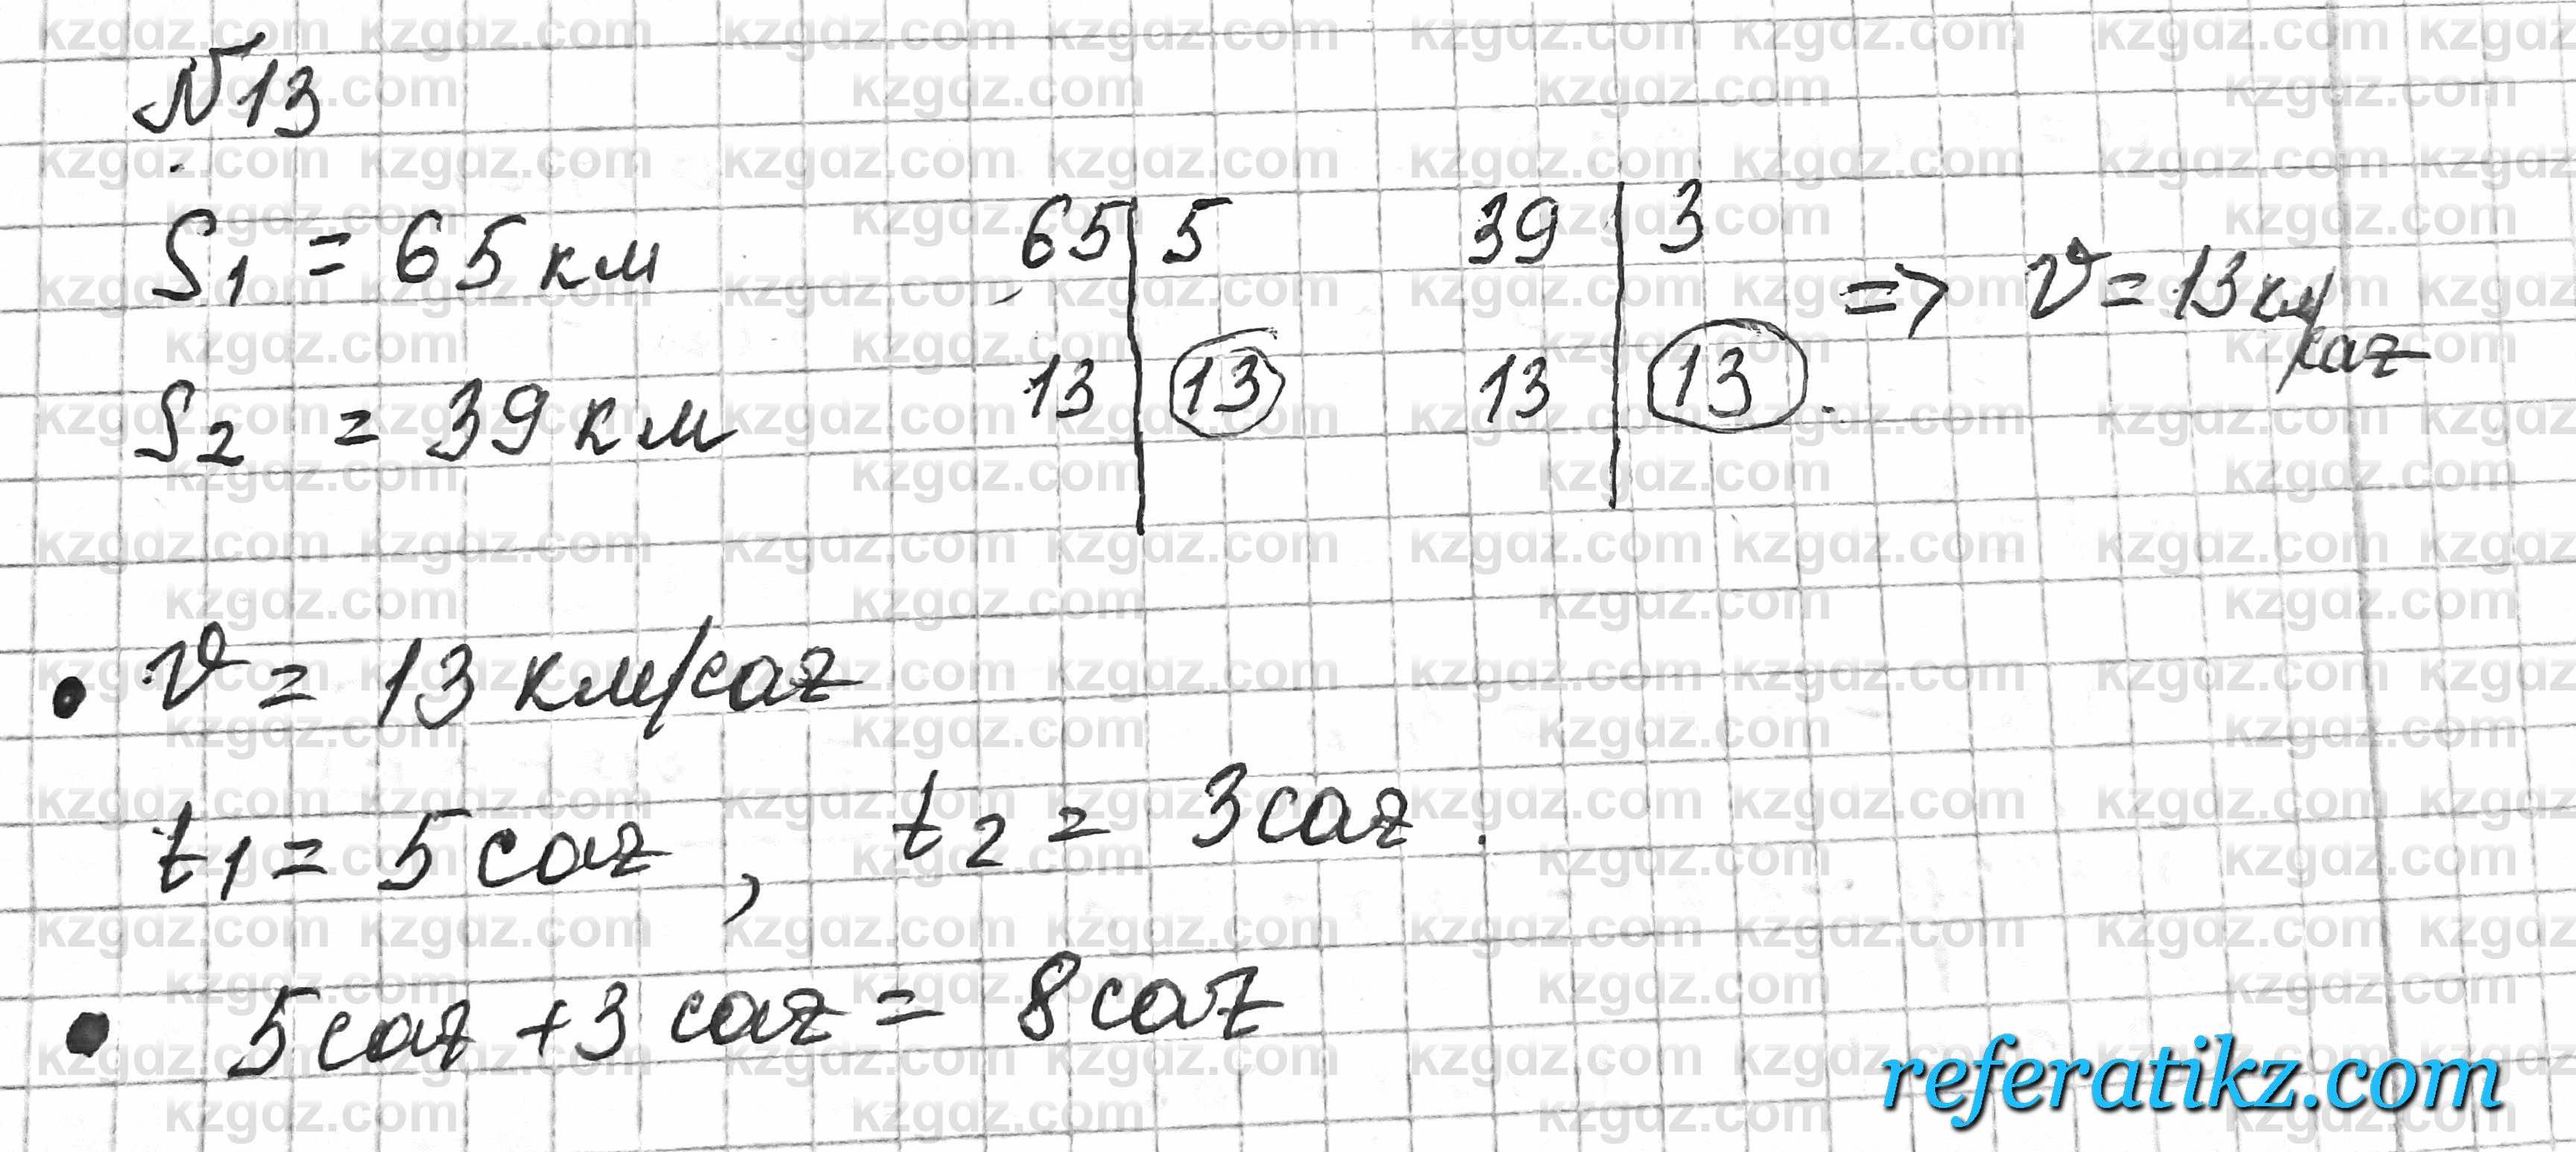 №13
S1 = 65 км
65 | 5
13 | 13
39 | 3
13 | 13.
=> v = 13 км/сағ
S2 = 39 км
• v = 13 км/сағ
t1 = 5 сағ, t2 = 3 сағ.
• 5 сағ + 3 сағ = 8 сағ
referatikz.com
kzgdz.com